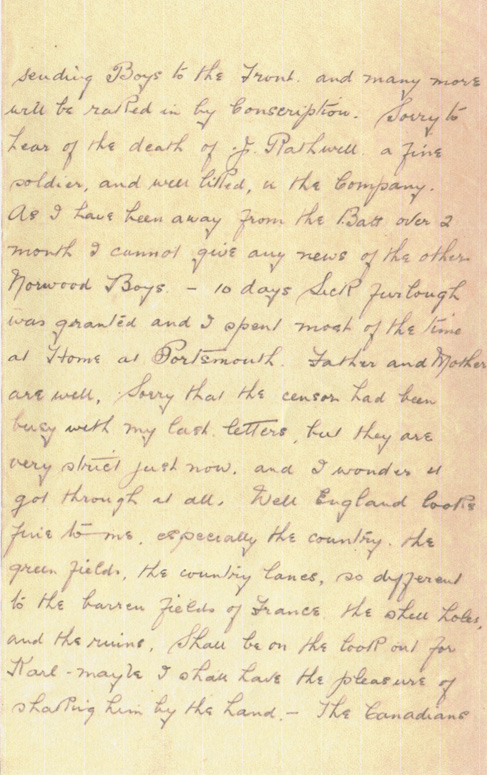 sending Boys to the Front. and many more
will be raked in by Conscription. Sorry to
hear of the death of J. Rathwell a fine
soldier, and well liked, in the Company.
As I have been away from the Batt over 2
month I cannot give any news of the other
Norwood Boys. - 10 days Sick furlough
was granted and I spent most of the time
at Home at Portsmouth. Father and Mother
are well, Sorry that the censor had been
busy with my last letters, but they are
very strict just now. and I wonder it
got through at all. Well England looks
fine to me, especially the country. the
green fields, the country lanes, so different
to the barren fields of France the shell holes,
and the ruins. Shall be on the look out for
Karl - maybe I shall have the pleasure of
shaking him by the hand. - The Canadians